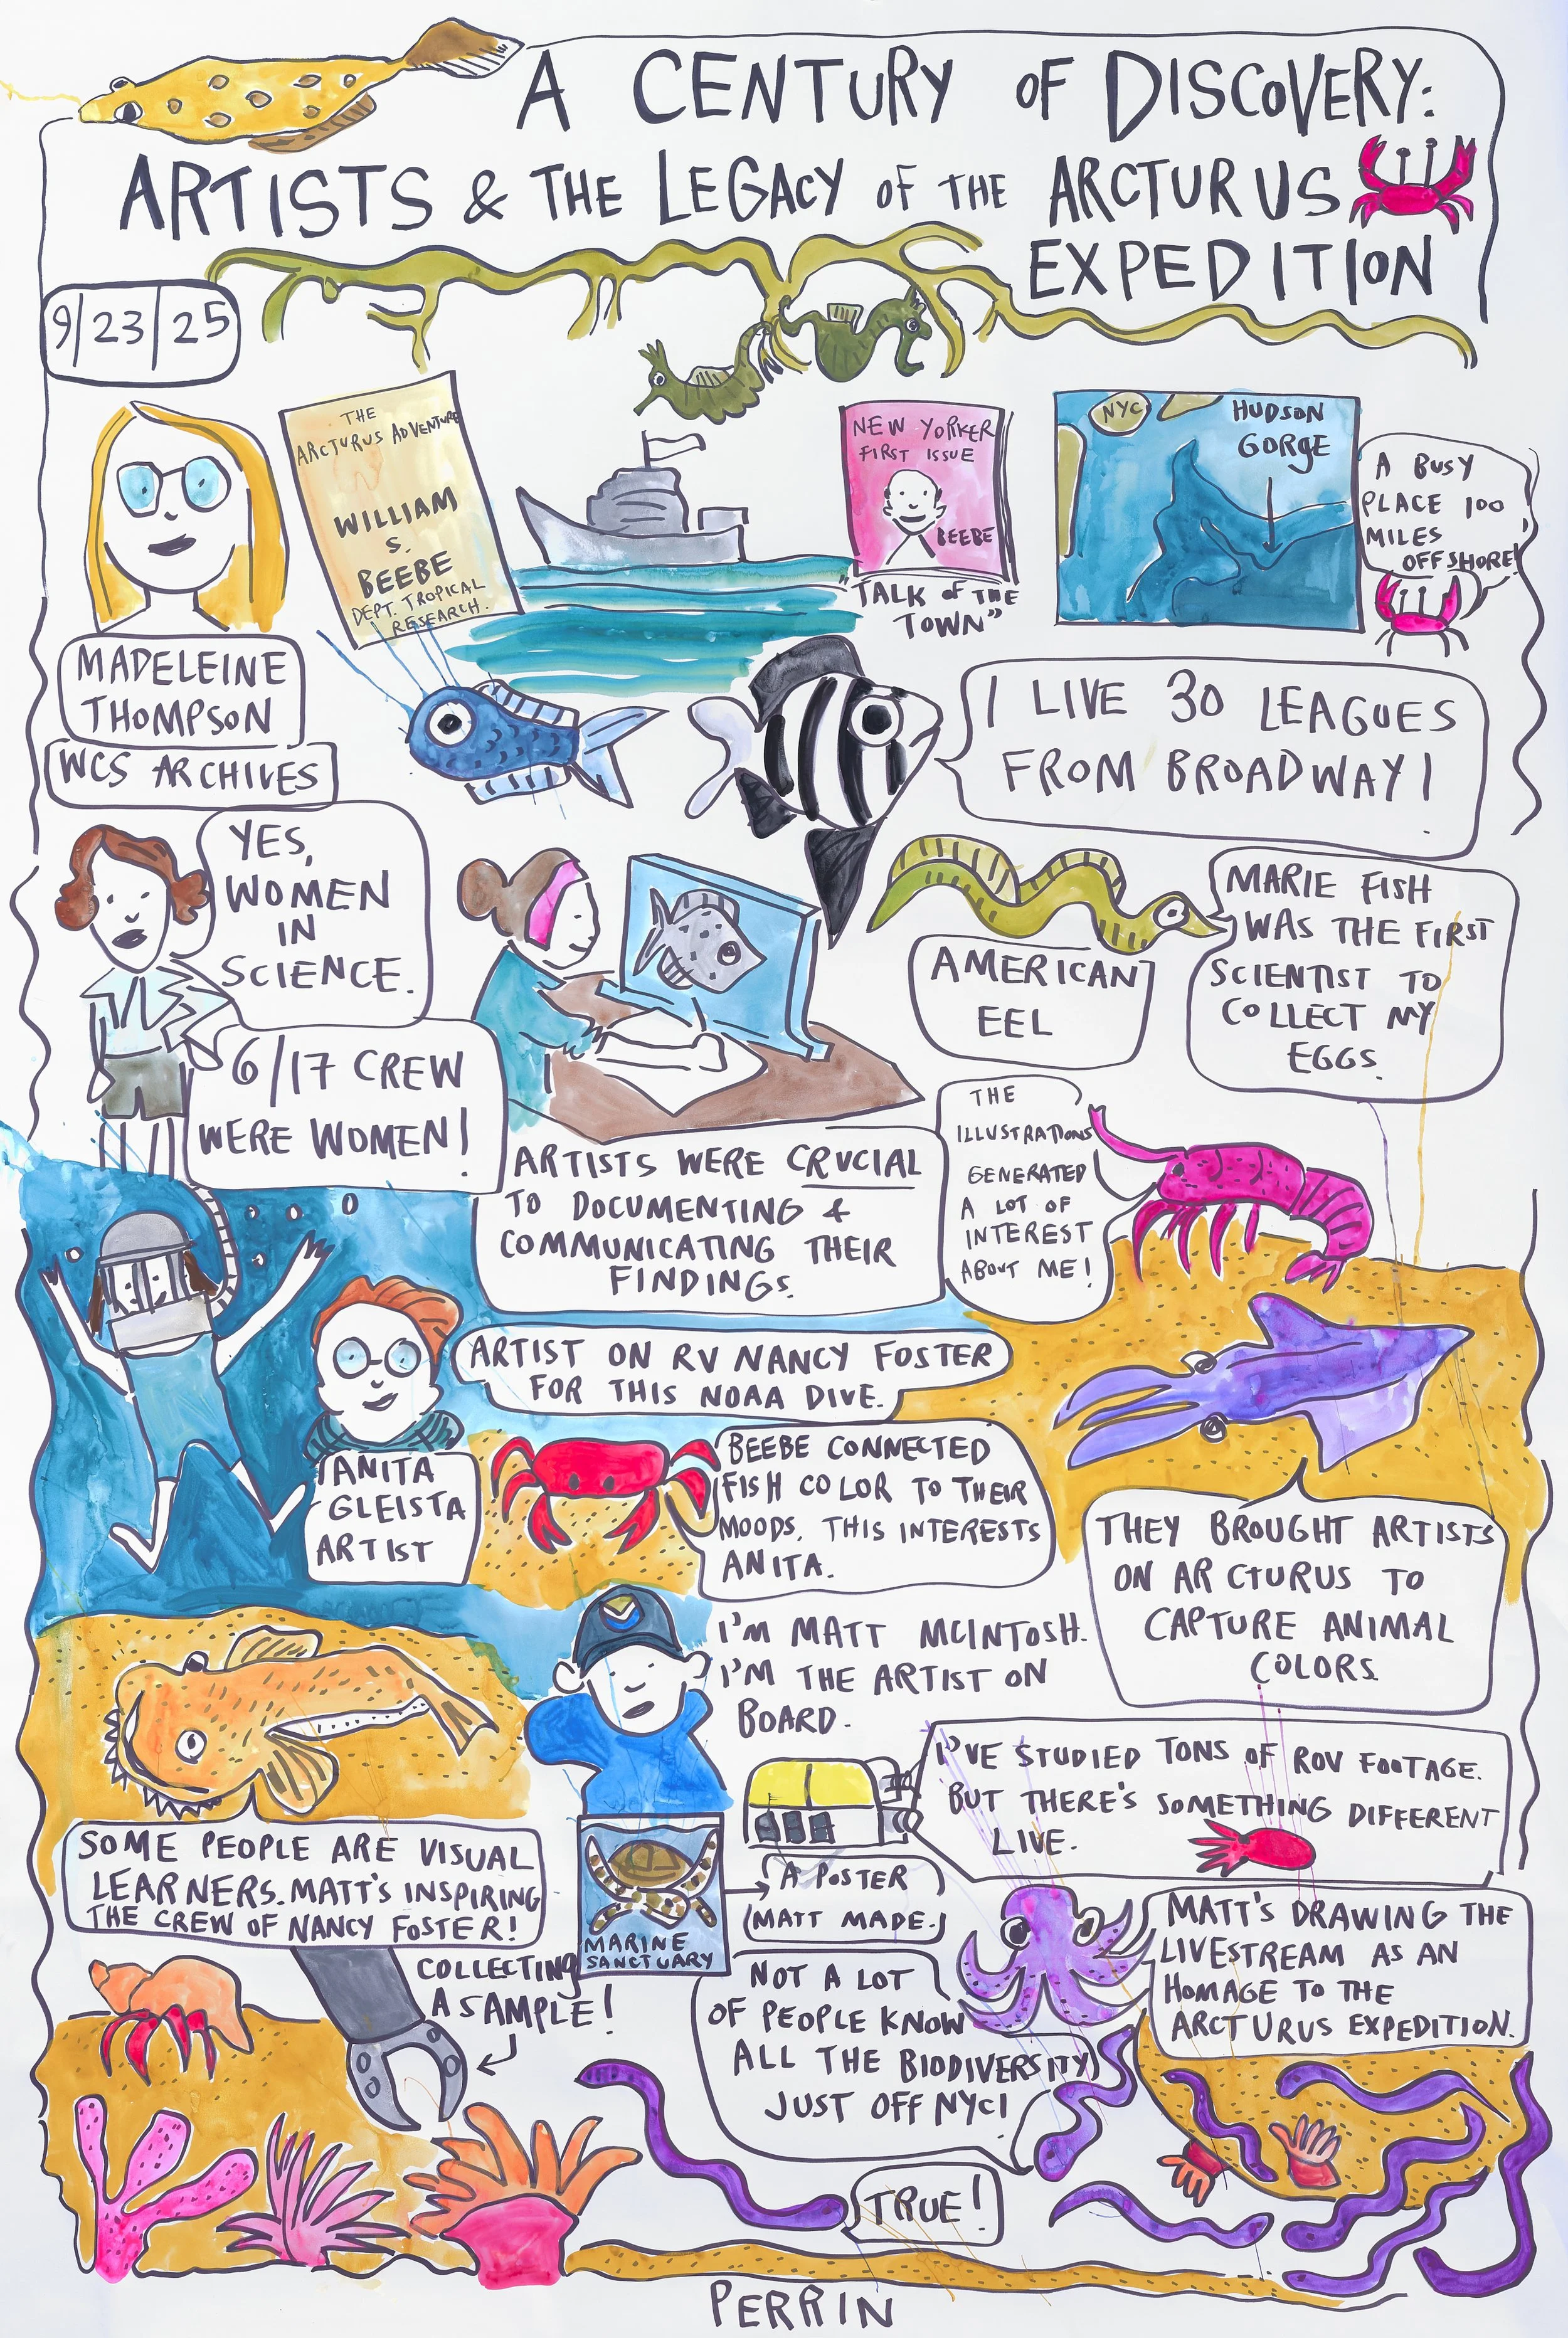 A CENTURY OF DISCOVERY:
ARTISTS & THE LEGACY OF THE ARCTURUS
EXPEDITION
9/23/25
THE
ARCTURUS ADVENTURE
WILLIAM
S.
BEEBE
DEPT. TROPICAL
RESEARCH.
NEW YORKER
FIRST ISSUE
BEEBE
"TALK OF THE
TOWN"
NYC
HUDSON
GORGE
A BUSY
PLACE 100
MILES
OFFSHORE!
MADELEINE
THOMPSON
WCS ARCHIVES
I LIVE 30 LEAGUES
FROM BROADWAY!
YES,
WOMEN
IN
SCIENCE.
6/17 CREW
WERE WOMEN!
AMERICAN
EEL
MARIE FISH
WAS THE FIRST
SCIENTIST TO
COLLECT MY
EGGS.
ARTISTS WERE CRUCIAL
TO DOCUMENTING &
COMMUNICATING THEIR
FINDINGS.
THE
ILLUSTRATIONS
GENERATED
A LOT OF
INTEREST
ABOUT ME!
ARTIST ON RV NANCY FOSTER
FOR THIS NOAA DIVE.
ANITA
GLEISTA
ARTIST
BEEBE CONNECTED
FISH COLOR TO THEIR
MOODS. THIS INTERESTS
ANITA.
THEY BROUGHT ARTISTS
ON ARCTURUS TO
CAPTURE ANIMAL
COLORS.
I'M MATT MCINTOSH.
I'M THE ARTIST ON
BOARD.
I'VE STUDIED TONS OF ROV FOOTAGE.
BUT THERE'S SOMETHING DIFFERENT
LIVE.
SOME PEOPLE ARE VISUAL
LEARNERS. MATT'S INSPIRING
THE CREW OF NANCY FOSTER!
MARINE
SANCTUARY
A POSTER
MATT MADE.
COLLECTING
A SAMPLE!
NOT A LOT
OF PEOPLE KNOW
ALL THE BIODIVERSITY
JUST OFF NYC!
MATT'S DRAWING THE
LIVESTREAM AS AN
HOMAGE TO THE
ARCTURUS EXPEDITION.
TRUE!
PERRIN